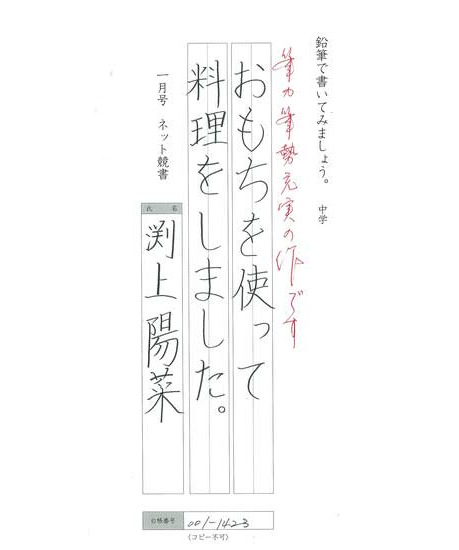 鉛筆で書いてみましょう。 中学
筆力筆勢充実の作です
おもちを使って
料理をしました。
一月号 ネット競書
氏名
渕上陽菜
合格番号 001-1423
(コピー不可)